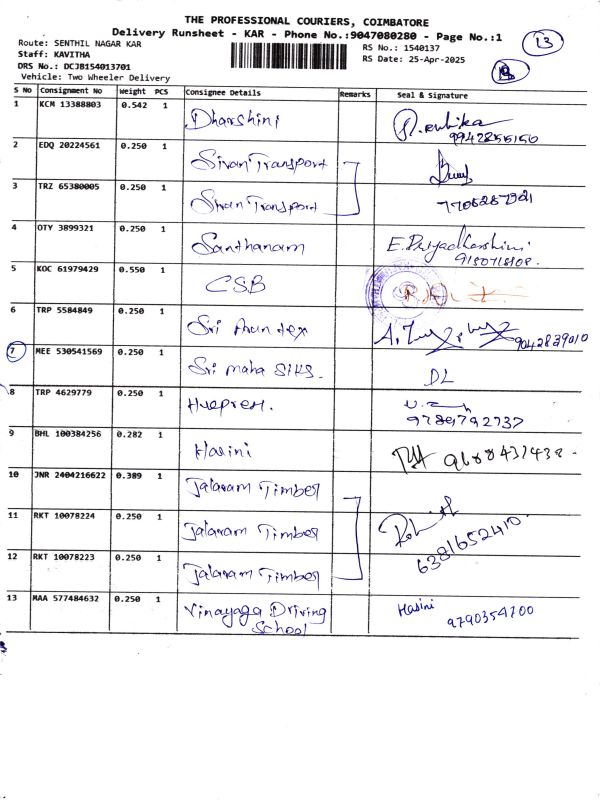 THE PROFESSIONAL COURIERS, COIMBATORE
Delivery Runsheet - KAR - Phone No.:9047080280 - Page No.:1
13
Route: SENTHIL NAGAR KAR
RS No.: 1540137
Staff: KAVITHA
RS Date: 25-Apr-2025
DRS No.: DCJB154013701
Vehicle: Two Wheeler Delivery
S No Consignment No Weight PCS Consignee Details Remarks Seal & Signature
1 KCM 13388803 0.542 1 Dharshini
9942855150
2 EDQ 20224561 0.250 1 Sivan Transport
3 TRZ 65380005 0.250 1 Sivan Transport
4 OTY 3899321 0.250 1 Santhanam E. Priyadharshini
5 KOC 61979429 0.550 1 CSB
6 TRP 5584849 0.250 1 Sri Arun tex
9042839010
7 MEE 530541569 0.250 1 Sri maha silks. DL
8 TRP 4629779 0.250 1
9789792737
9 BHL 100384256 0.282 1 Hasini 9688437438
10 JNR 2404216622 0.389 1 Jalaram Timber
11 RKT 10078224 0.250 1 Jalaram Timber
6381652410
12 RKT 10078223 0.250 1 Jalaram Timber
13 MAA 577484632 0.250 1 Vinayaga Driving School Hasini
9790354700